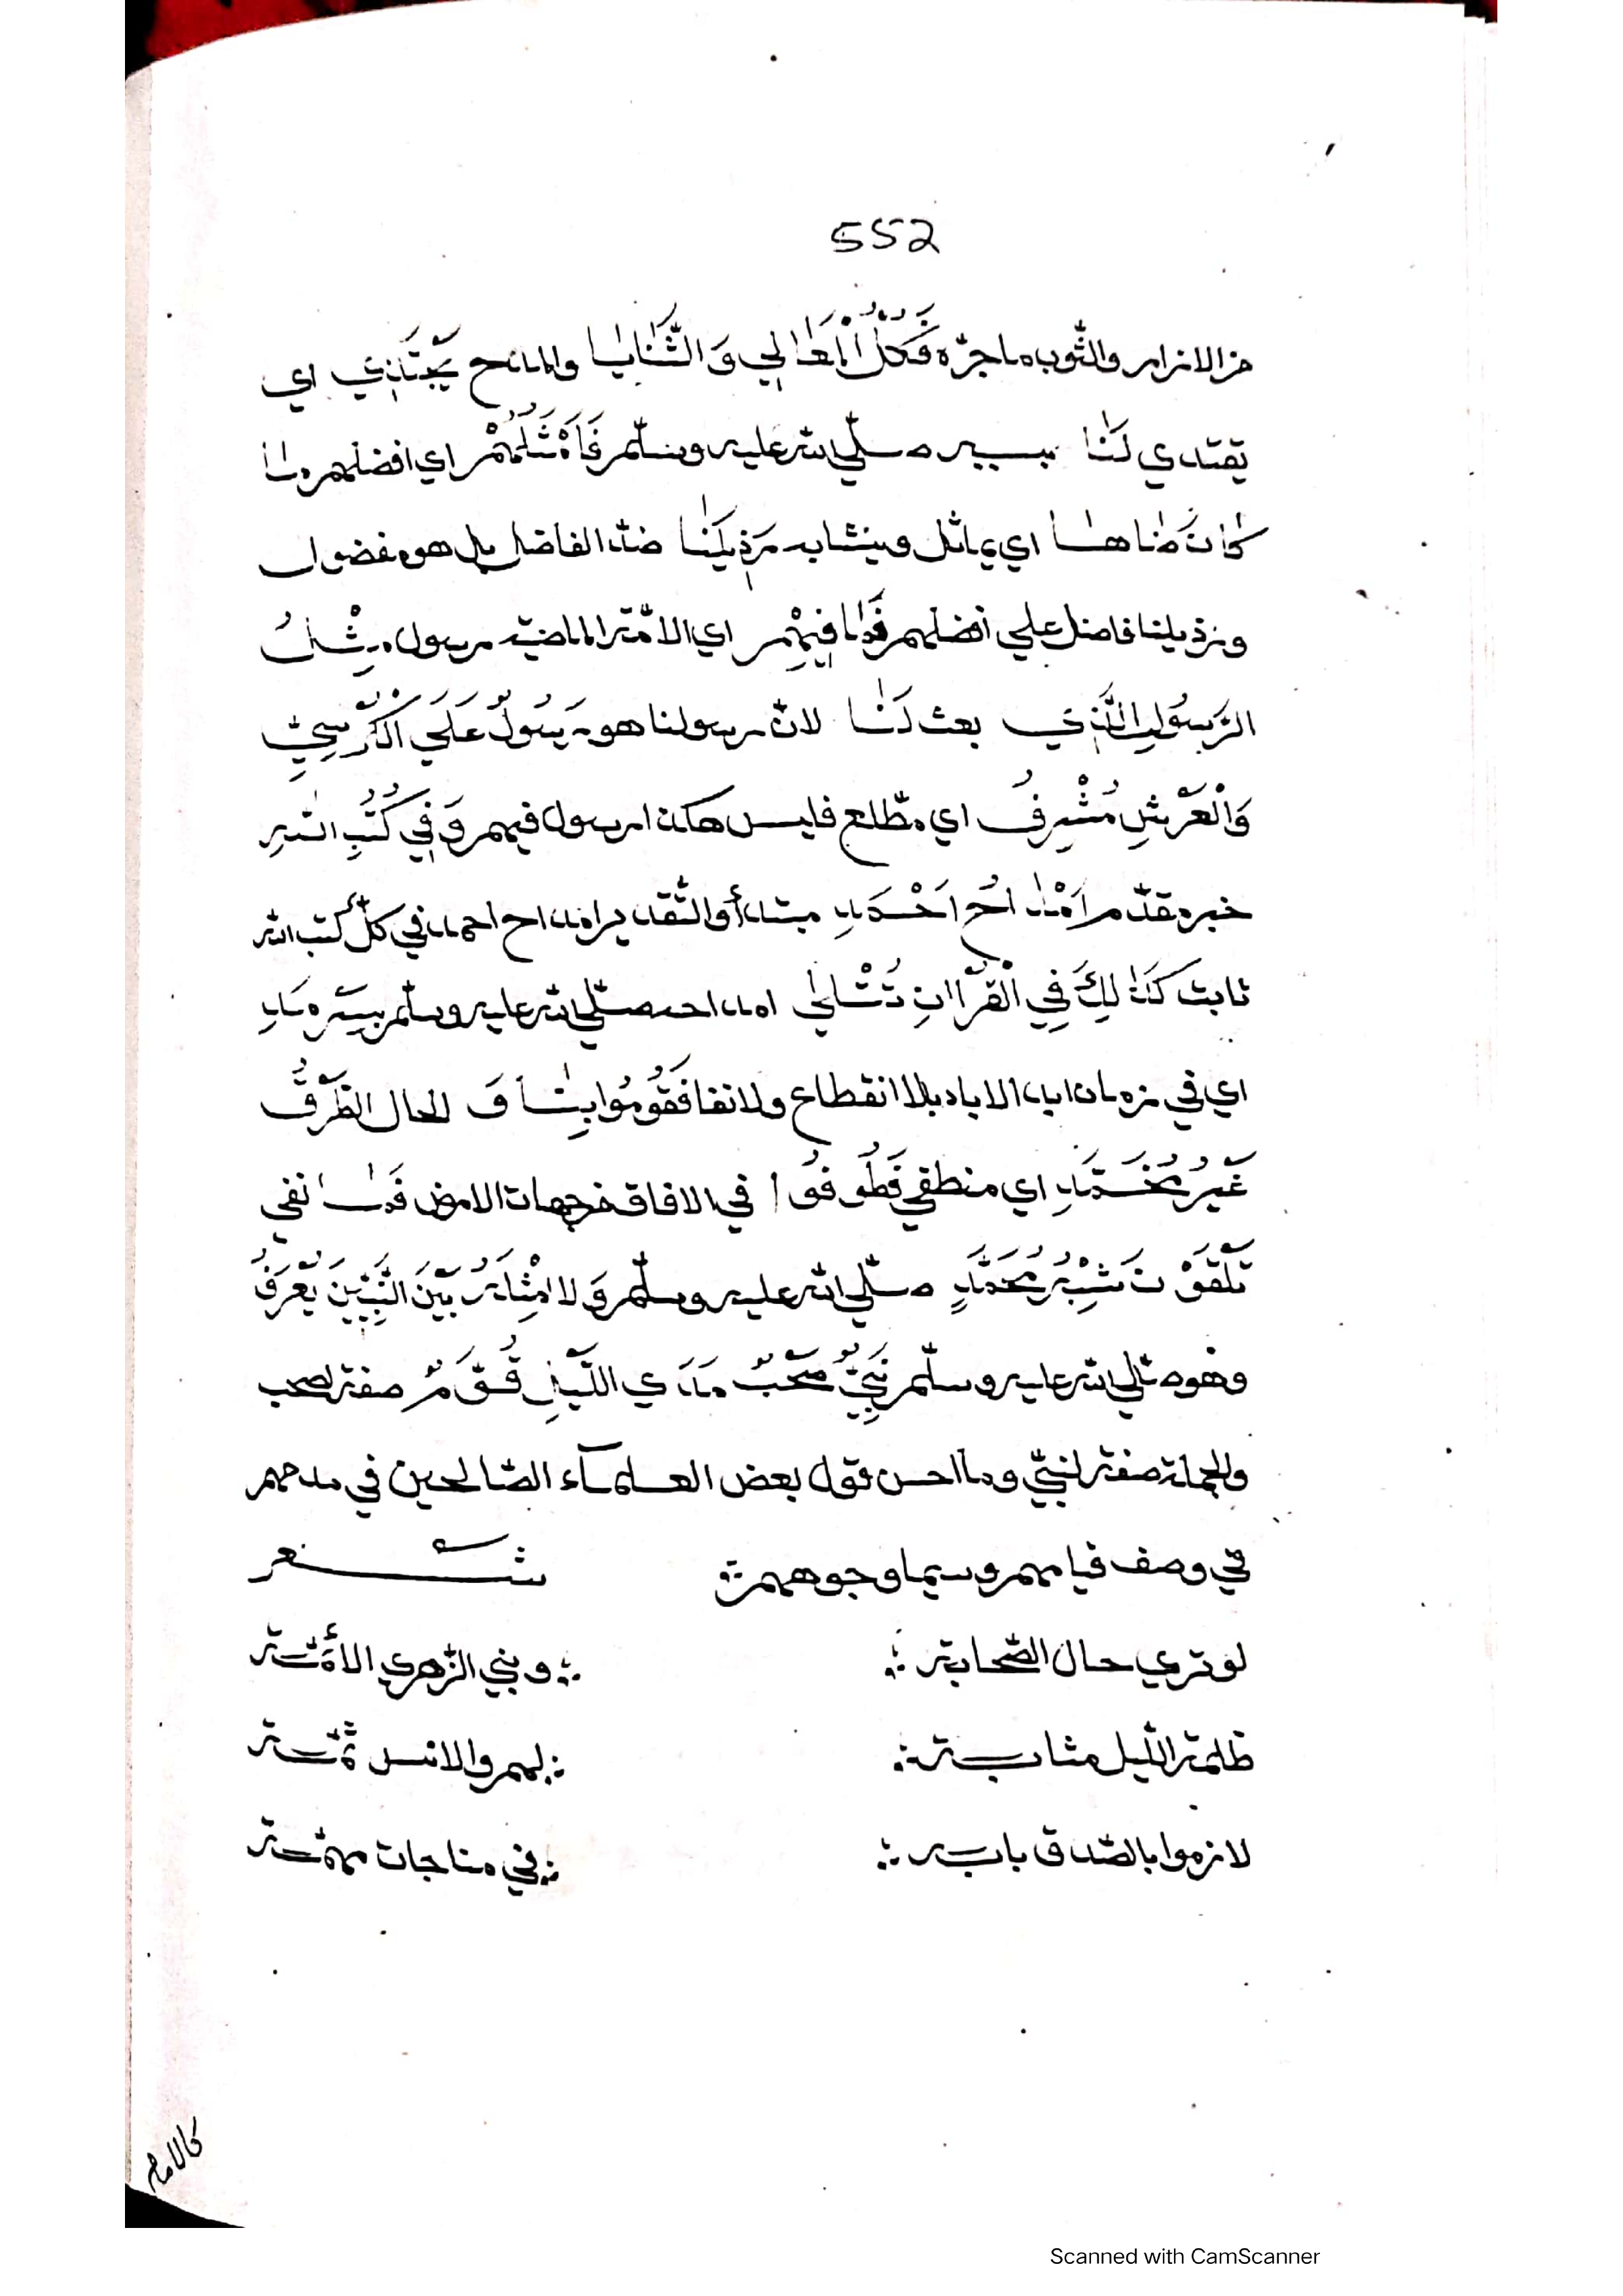 552
من الازار والثوب ما جرّه فَكُلُّ الْمَعَالِي وَالثَّنَايَا والمدائح يَجْتَذِي اي
يقتدي لَنَا بسيره صلّي الله عليه وسلّم فَأَمْثَلُهُمْ اي افضلهم ما
كانَ ضاها اي يماثل ويشابه مَرْذِيلَنَا ضدّ الفاضل بل هو مفضول
ومرذيلنا فاضل علي افضلهم فَمَا فِيهِمْ اي الامّة الماضية رسول مِثْلُ
الرَّسُولِ الَّذِي بعث لَنَا لانّ رسولنا هو رَسُولٌ عَلَي الْكُرْسِيِّ
وَالْعَرْشِ مُشْرِفُ اي مطّلع فليس هكذا رسول فيهم وَفِي كُتُبِ اللهِ
خبر مقدّم اَمْدَاحُ اَحْمَدِ مبتدأ والتّقدير امداح احمد في كلّ كتب الله
ثابت كَذَلِكَ فِي الْقُرْاٰنِ تُتْلَي امداحه صلّي الله عليه وسلّم بِسَرْمَدِ
اي في زمان ابد الاباد بلا انقطاع ولا نفاد فَقُومُوا بِسَاق للحال الظَّرْفُ
غَيْرُ مُخَمَّدِ اي منطقي فَطُوفُوا في الافاق من جهات الارض فَمَا نفي
تَلْقَوْنَ شِبْهَ مُحَمَّدٍ صلّي الله عليه وسلّم وَلا مِثْلَهُ بَيْنَ النَّبِيِّينَ يُعْرَفُ
وهو صلّي الله عليه وسلّم نَبِيٌّ صَحْبُهُ مَدَي اللَّيْلِ قُوَّمٌ صفة لصحب
والجملة صفة لنبيّ وما احسن قول بعض العلمآء الصّالحين في مدحهم
في وصف قيامهم وسيما وجوههم شعر
لو تري حال الصّحابة وبني الزّهري الأئمّة
ظلمة اللّيل مثابة لهم والانس ثمّة
لازموا بالصّدق بابه في مناجات مهمّة
Scanned with CamScanner